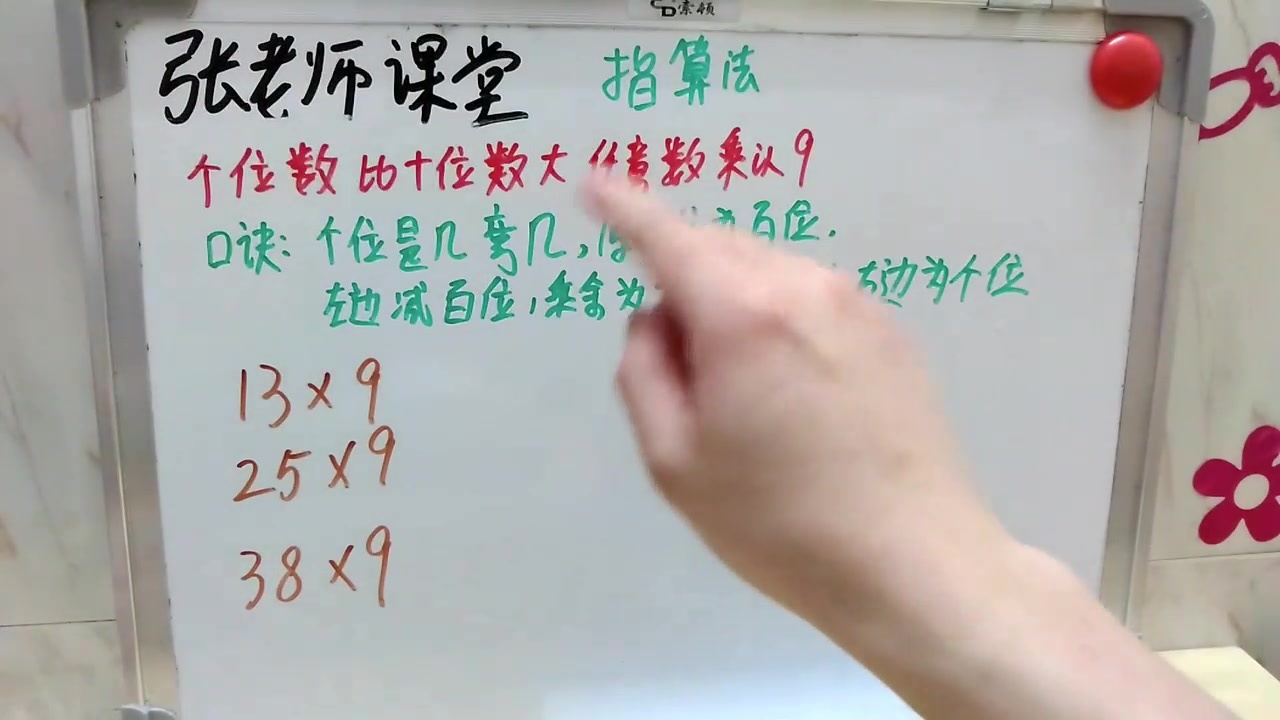 索顿
张老师课堂 指算法
个位数比十位数大 任意数乘以9
口诀: 个位是几弯几, 为百位.
左边减百位,乘余为 右边为个位
13×9
25×9
38×9